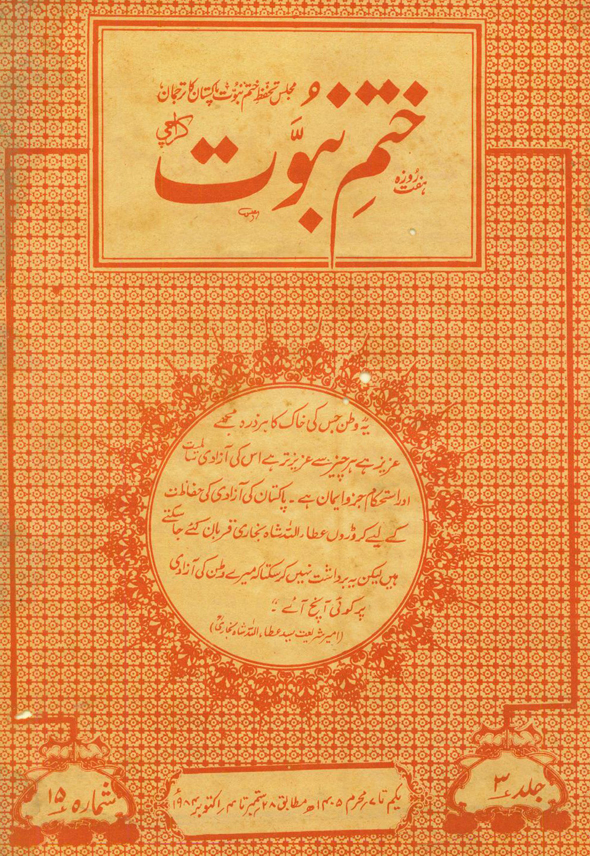 مجلس تحفظ ختم نبوّت پاکستان کا ترجمان
ہفت روزہ
ختمِ نبوَّت
کراچی
یہ وطن جس کی خاک کا ہر ذرہ مجھے
عزیز ہے ہر چیز سے عزیز تر ہے اس کی آزادی سالمیت
اور استحکام جزو ایمان ہے ۔ پاکستان کی آزادی کی حفاظت
کے لیے کروڑوں عطاء اللہ شاہ بخاری قربان کئے جا سکتے
ہیں لیکن یہ برداشت نہیں کر سکتا کہ میرے وطن کی آزادی
پر کوئی آنچ آئے ؛
(امیر شریعت سید عطاء اللہ شاہ بخاریؒ)
جلد ۳
یکم تا ۷ محرم ۱۴۰۵ھ مطابق ۲۸ ستمبر تا ۴ اکتوبر ۱۹۸۴ء
شمارہ ۱۵